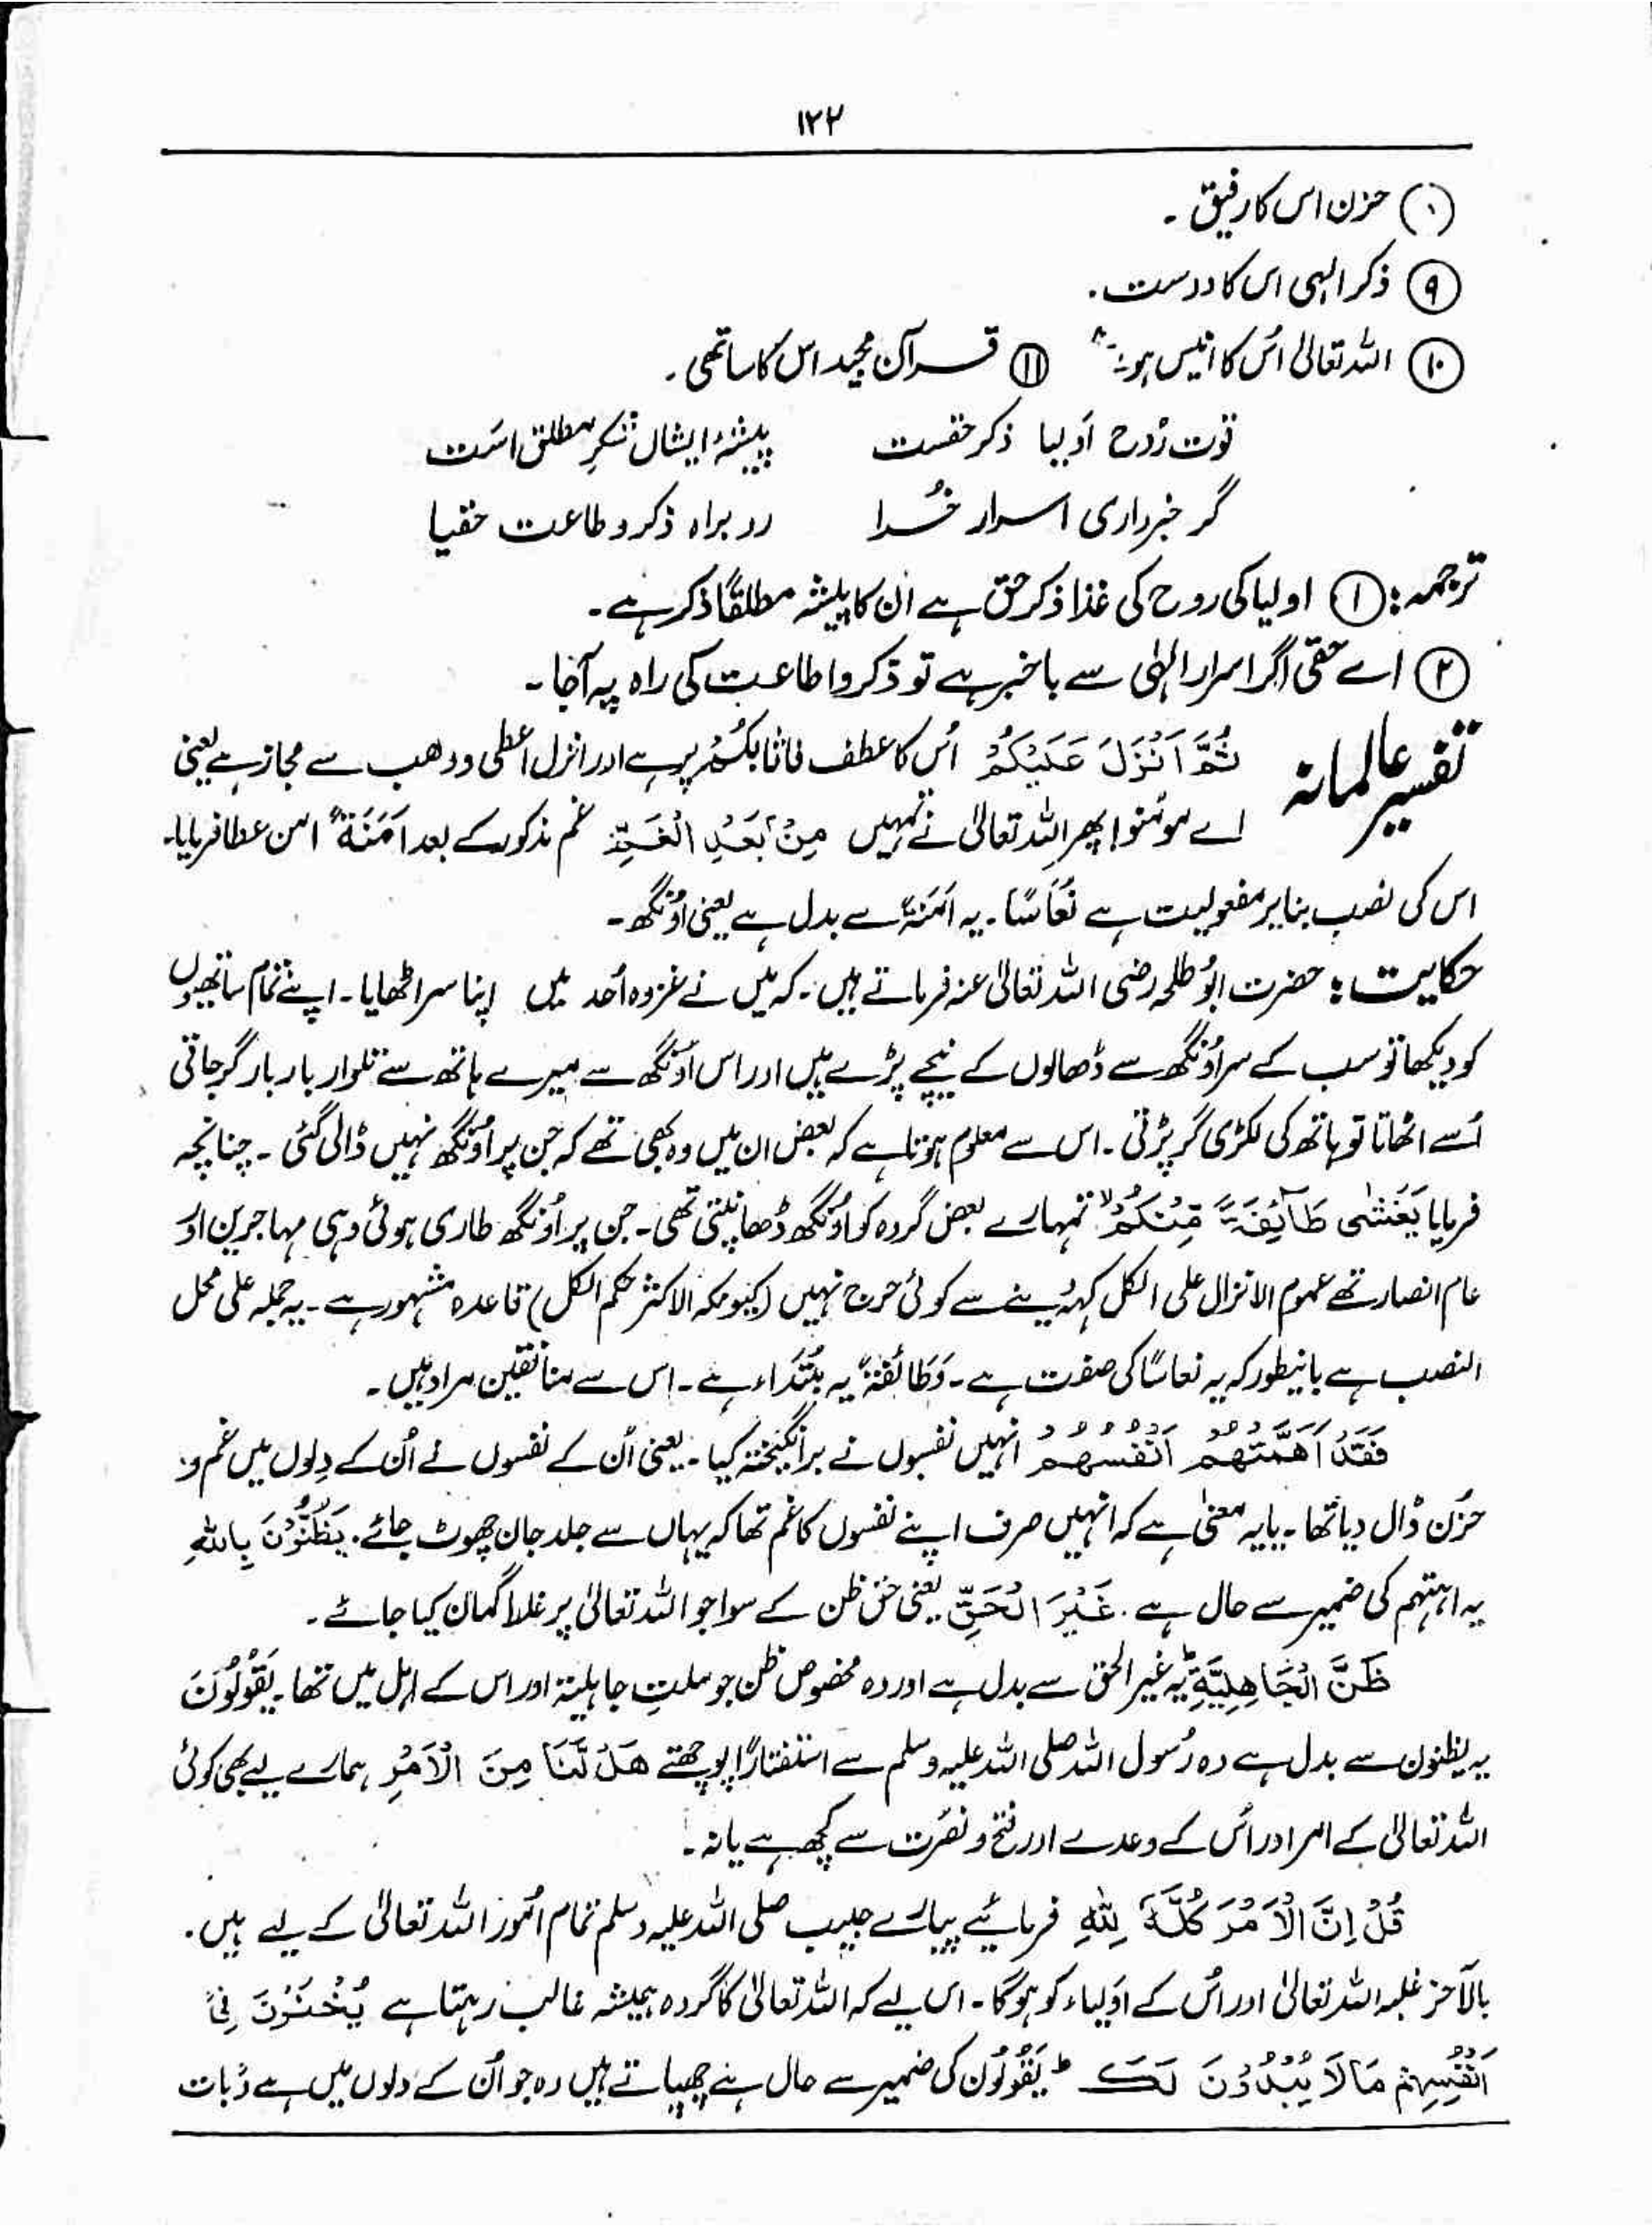 ۱۲۲
(۸) حزن اس کا رفیق ۔
(۹) ذکر الہی اس کا دوست ۔
(۱۰) اللہ تعالیٰ اُس کا انیس ہو (۱۱) قرآن مجید اس کا ساتھی ۔
قوت رُوح اَولیا ذکر حقست پیشۂ ایشاں ذکرِ مطلق است
گر خبرداری اسرار خُدا رو براہ ذکر و طاعت حقیا
ترجمہ: (۱) اولیا کی روح کی غذا ذکر حق ہے ان کا پیشہ مطلقًا ذکر ہے ۔
(۲) اے حقی اگر اسرار الہٰی سے باخبر ہے تو ذکر و اطاعت کی راہ پہ آجا ۔
تفسیر عالمانہ ثُمَّ اَنْزَلَ عَلَیْکُمْ اُس کا عطف فاثابکُمْ پر ہے اور انزل اعطی و وھب سے مجاز ہے یعنی
اے مومنو! پھر اللہ تعالیٰ نے تمہیں مِنْۢ بَعْدِ الْغَمِّ غم مذکور کے بعد اَمَنَةً امن عطا فرمایا۔
اس کی نصب بنابر مفعولیت ہے نُّعَاسًا ۔ یہ اَمَنَۃً سے بدل ہے یعنی اُونگھ ۔
حکایت : حضرت ابُو طلحہ رضی اللہ تعالیٰ عنہ فرماتے ہیں ۔ کہ میں نے غزوہ اُحد میں اپنا سر اٹھایا ۔ اپنے تمام ساتھیوں
کو دیکھا تو سب کے سر اُونگھ سے ڈھالوں کے نیچے پڑے ہیں اور اس اُونگھ سے میرے ہاتھ سے تلوار بار بار گر جاتی
اُسے اٹھاتا تو ہاتھ کی لکڑی گر پڑتی ۔ اس سے معلوم ہوتا ہے کہ بعض ان میں وہ بھی تھے کہ جن پر اُونگھ نہیں ڈالی گئی ۔ چنانچہ
فرمایا یَغْشٰی طَآئِفَةً مِّنْکُمْ تمہارے بعض گروہ کو اُونگھ ڈھانپتی تھی ۔ جن پر اُونگھ طاری ہوئی وہی مہاجرین اور
عام انصار تھے عموم الانزال علی الکل کہہ دینے سے کوئی حرج نہیں (کیونکہ الاکثر حکم الکل) قاعدہ مشہور ہے ۔ یہ جملہ علی محل
النصب ہے بانیطور کہ یہ نعاسًا کی صفت ہے ۔ وَطَائفۃٌ یہ مبتداء ہے ۔ اس سے منافقین مراد ہیں ۔
فَقَدْ اَهَمَّتْهُمْ اَنْفُسُهُمْ انہیں نفسوں نے برانگیختہ کیا ۔ یعنی اُن کے نفسوں نے اُن کے دِلوں میں غم و
حزن ڈال دیا تھا ۔ یا یہ معنیٰ ہے کہ انہیں صرف اپنے نفسوں کا غم تھا کہ یہاں سے جلد جان چھوٹ جائے ۔ یَظُنُّوْنَ بِاللّٰهِ
یہ اہمتہم کی ضمیر سے حال ہے ۔ غَیْرَ الْحَقِّ یعنی حق ظن کے سوا جو اللہ تعالیٰ پر غلط گمان کیا جائے ۔
ظَنَّ الْجَاهِلِیَّةِ یہ غیر الحق سے بدل ہے اور وہ مخصوص ظن جو ملتِ جاہلیۃ اور اس کے اہل میں تھا ۔ یَقُوْلُوْنَ
یہ یظنون سے بدل ہے وہ رُسول اللہ صلی اللہ علیہ وسلم سے استفتارًا پوچھتے هَلْ لَّنَا مِنَ الْاَمْرِ ہمارے لیے بھی کوئی
اللہ تعالیٰ کے امر اور اُس کے وعدے اور فتح و نصرت سے کچھ ہے یا نہ ۔
قُلْ اِنَّ الْاَمْرَ کُلَّهٗ لِلّٰهِ فرمائیے پیارے حبیب صلی اللہ علیہ وسلم تمام اُمور اللہ تعالیٰ کے لیے ہیں ۔
بالآخر غلبہ اللہ تعالیٰ اور اُس کے اَولیاء کو ہوگا ۔ اس لیے کہ اللہ تعالیٰ کا گروہ ہمیشہ غالب رہتا ہے یُخْفُوْنَ فِیْٓ
اَنْفُسِهِمْ مَا لَا یُبْدُوْنَ لَکَ ط یَقُوْلُوْن کی ضمیر سے حال ہے چھپاتے ہیں وہ جو اُن کے دلوں میں ہے وُہ بات